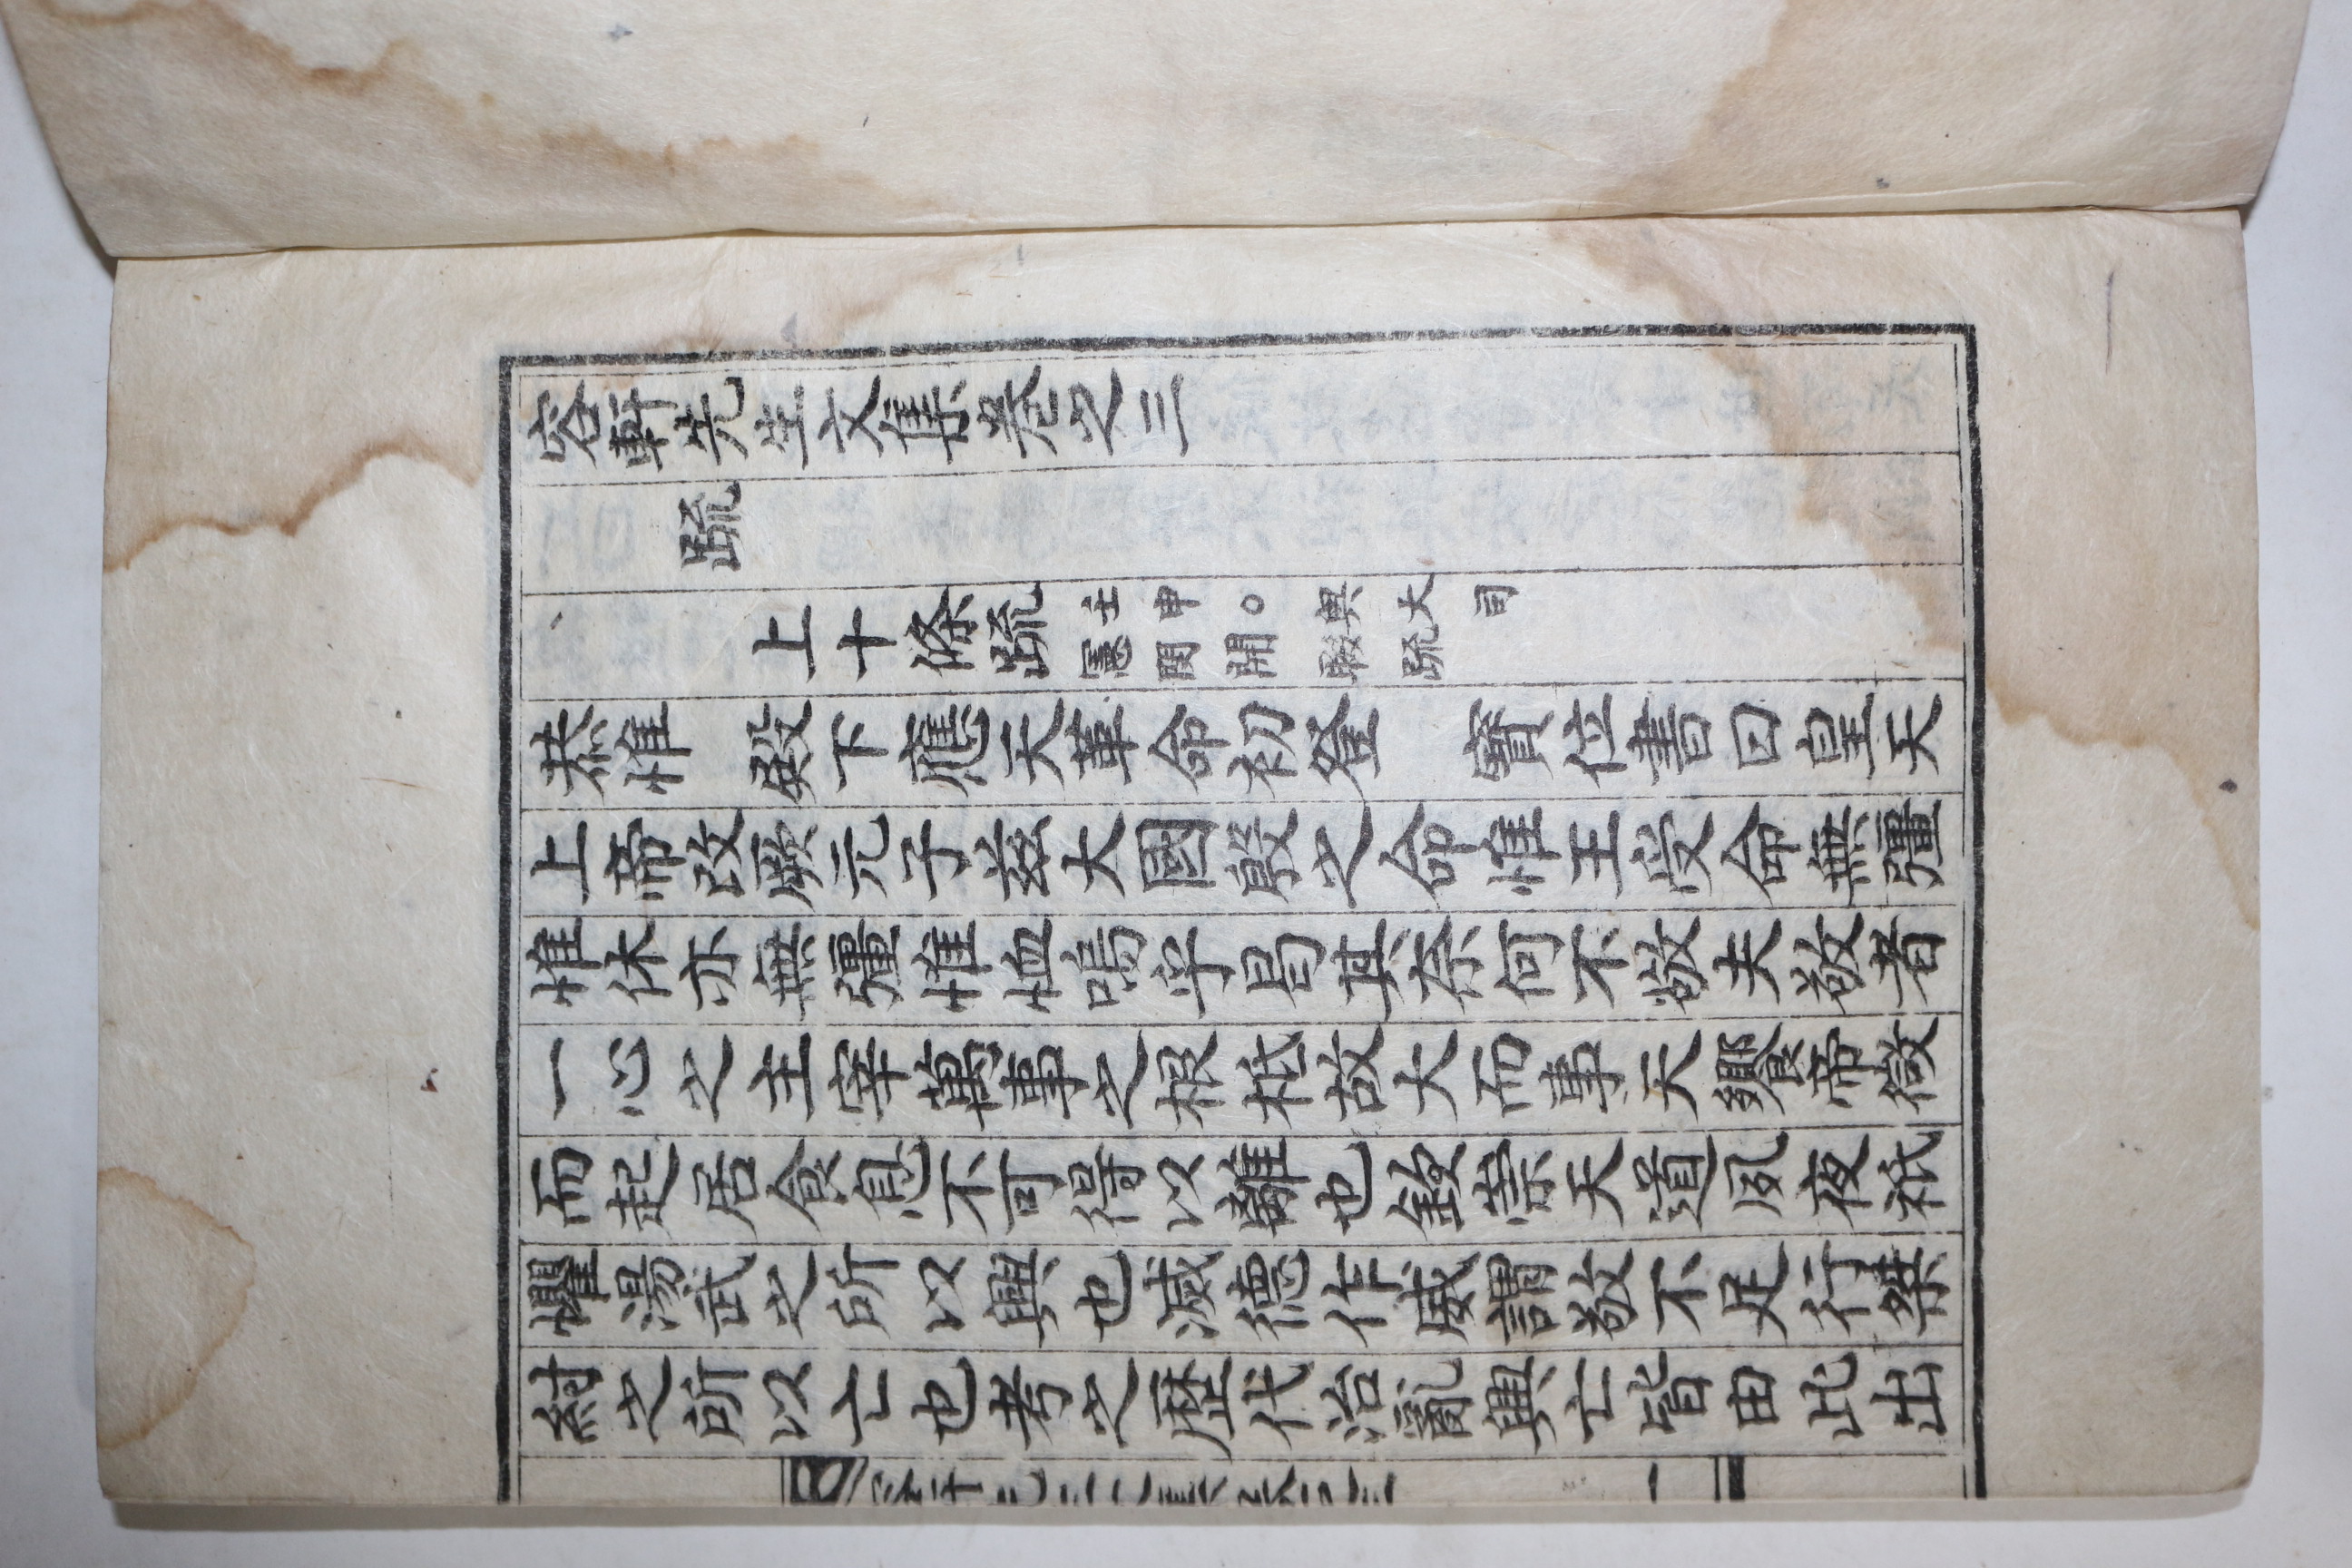 容軒先生文集卷之三
疏
上十條疏 壬申○與大司
憲閔開疏
恭惟 殿下應天革命初登 寶位書曰皇天
上帝改厥元子玆大國殷之命惟王受命無彊
惟休亦無彊惟恤嗚乎曷其奈何不敬夫敬者
一心之主宰萬事之根柢故大而事天饗帝微
而起居食息不可得以離也欽崇天道夙夜祗
懼湯武之所以興也滅德作威謂敬不足行桀
紂之所以亡也考之歷代治亂興亡皆由此出